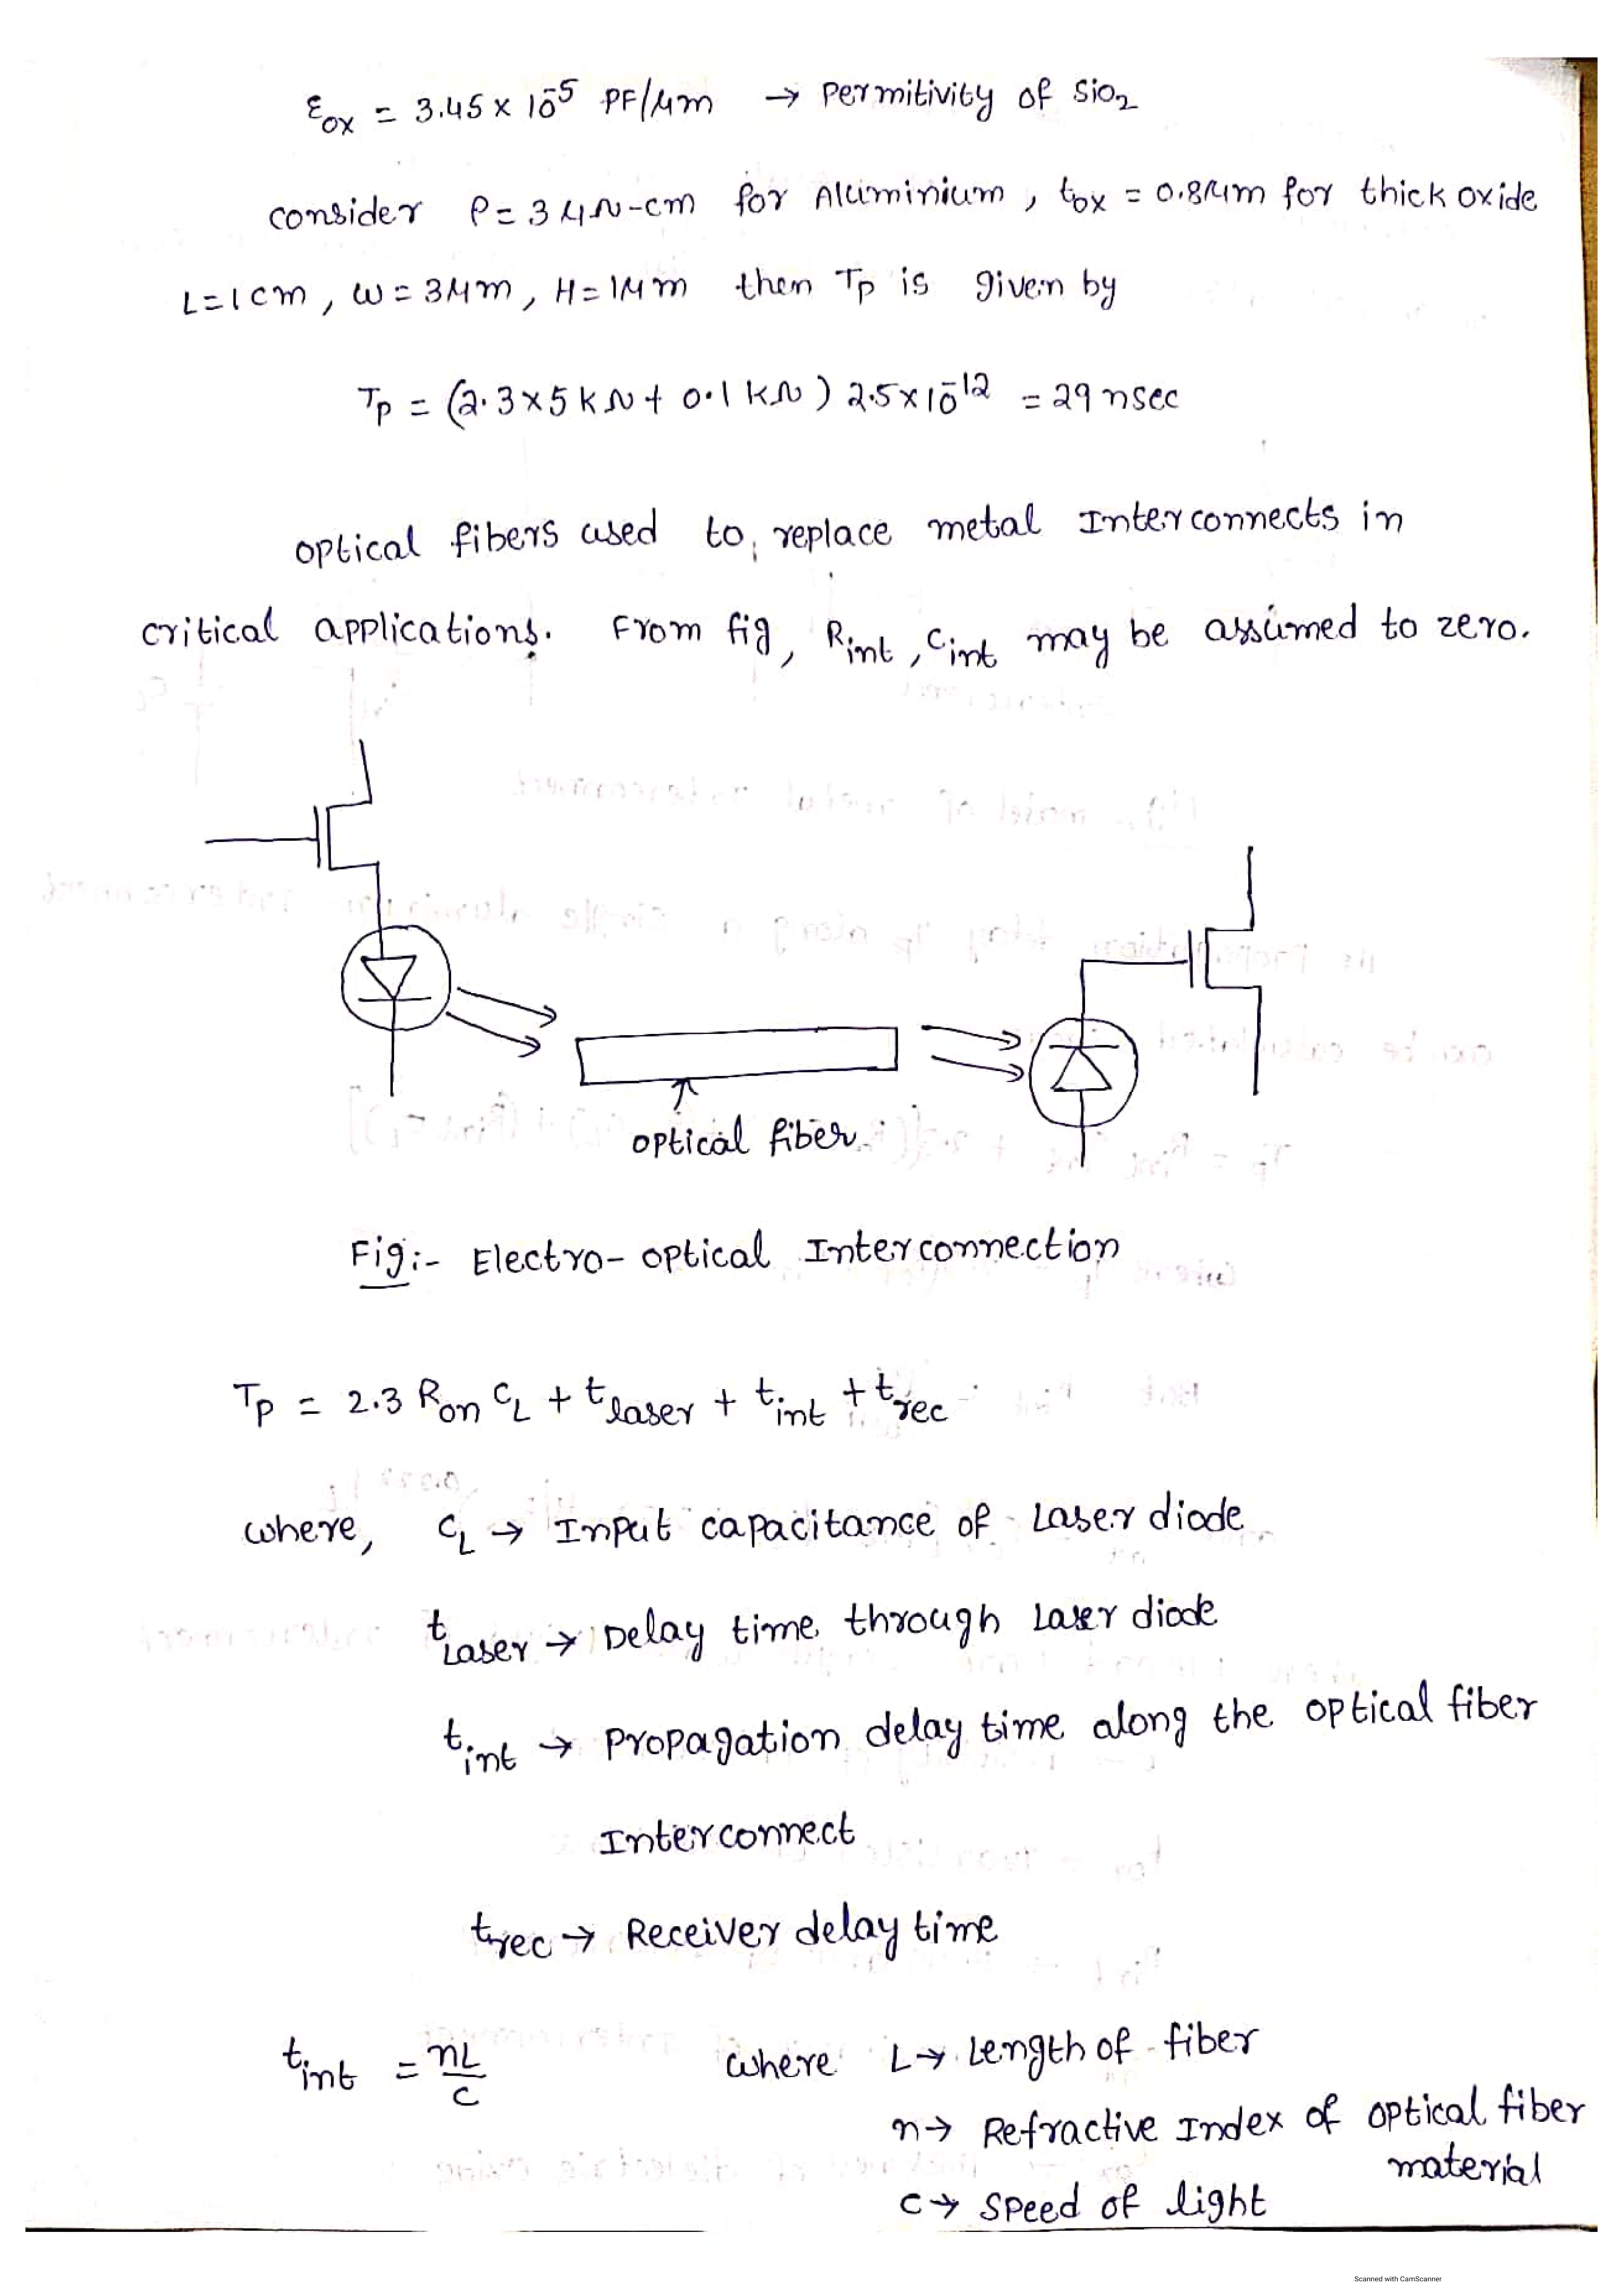 εox = 3.45 x 10⁻⁵ PF/μm → Permitivity of SiO₂
consider ρ = 3 μΩ-cm for Aluminium, tox = 0.8μm for thick oxide
L=1cm, W = 3μm, H = 1μm then Tp is given by
Tp = (2.3x5kΩ + 0.1 kΩ) 2.5x10⁻¹² = 29 nsec
optical fibers used to replace metal Interconnects in
critical applications. From fig, Rint, Cint may be assumed to zero.
optical fiber
Fig:- Electro-optical Interconnection
Tp = 2.3 Ron CL + tlaser + tint + trec
where, CL → Input capacitance of Laser diode
tLaser → Delay time through Laser diode
tint → Propagation delay time along the optical fiber
Interconnect
trec → Receiver delay time
tint = nL/c where L → Length of fiber
n → Refractive Index of optical fiber
material
c → speed of light
Scanned with CamScanner